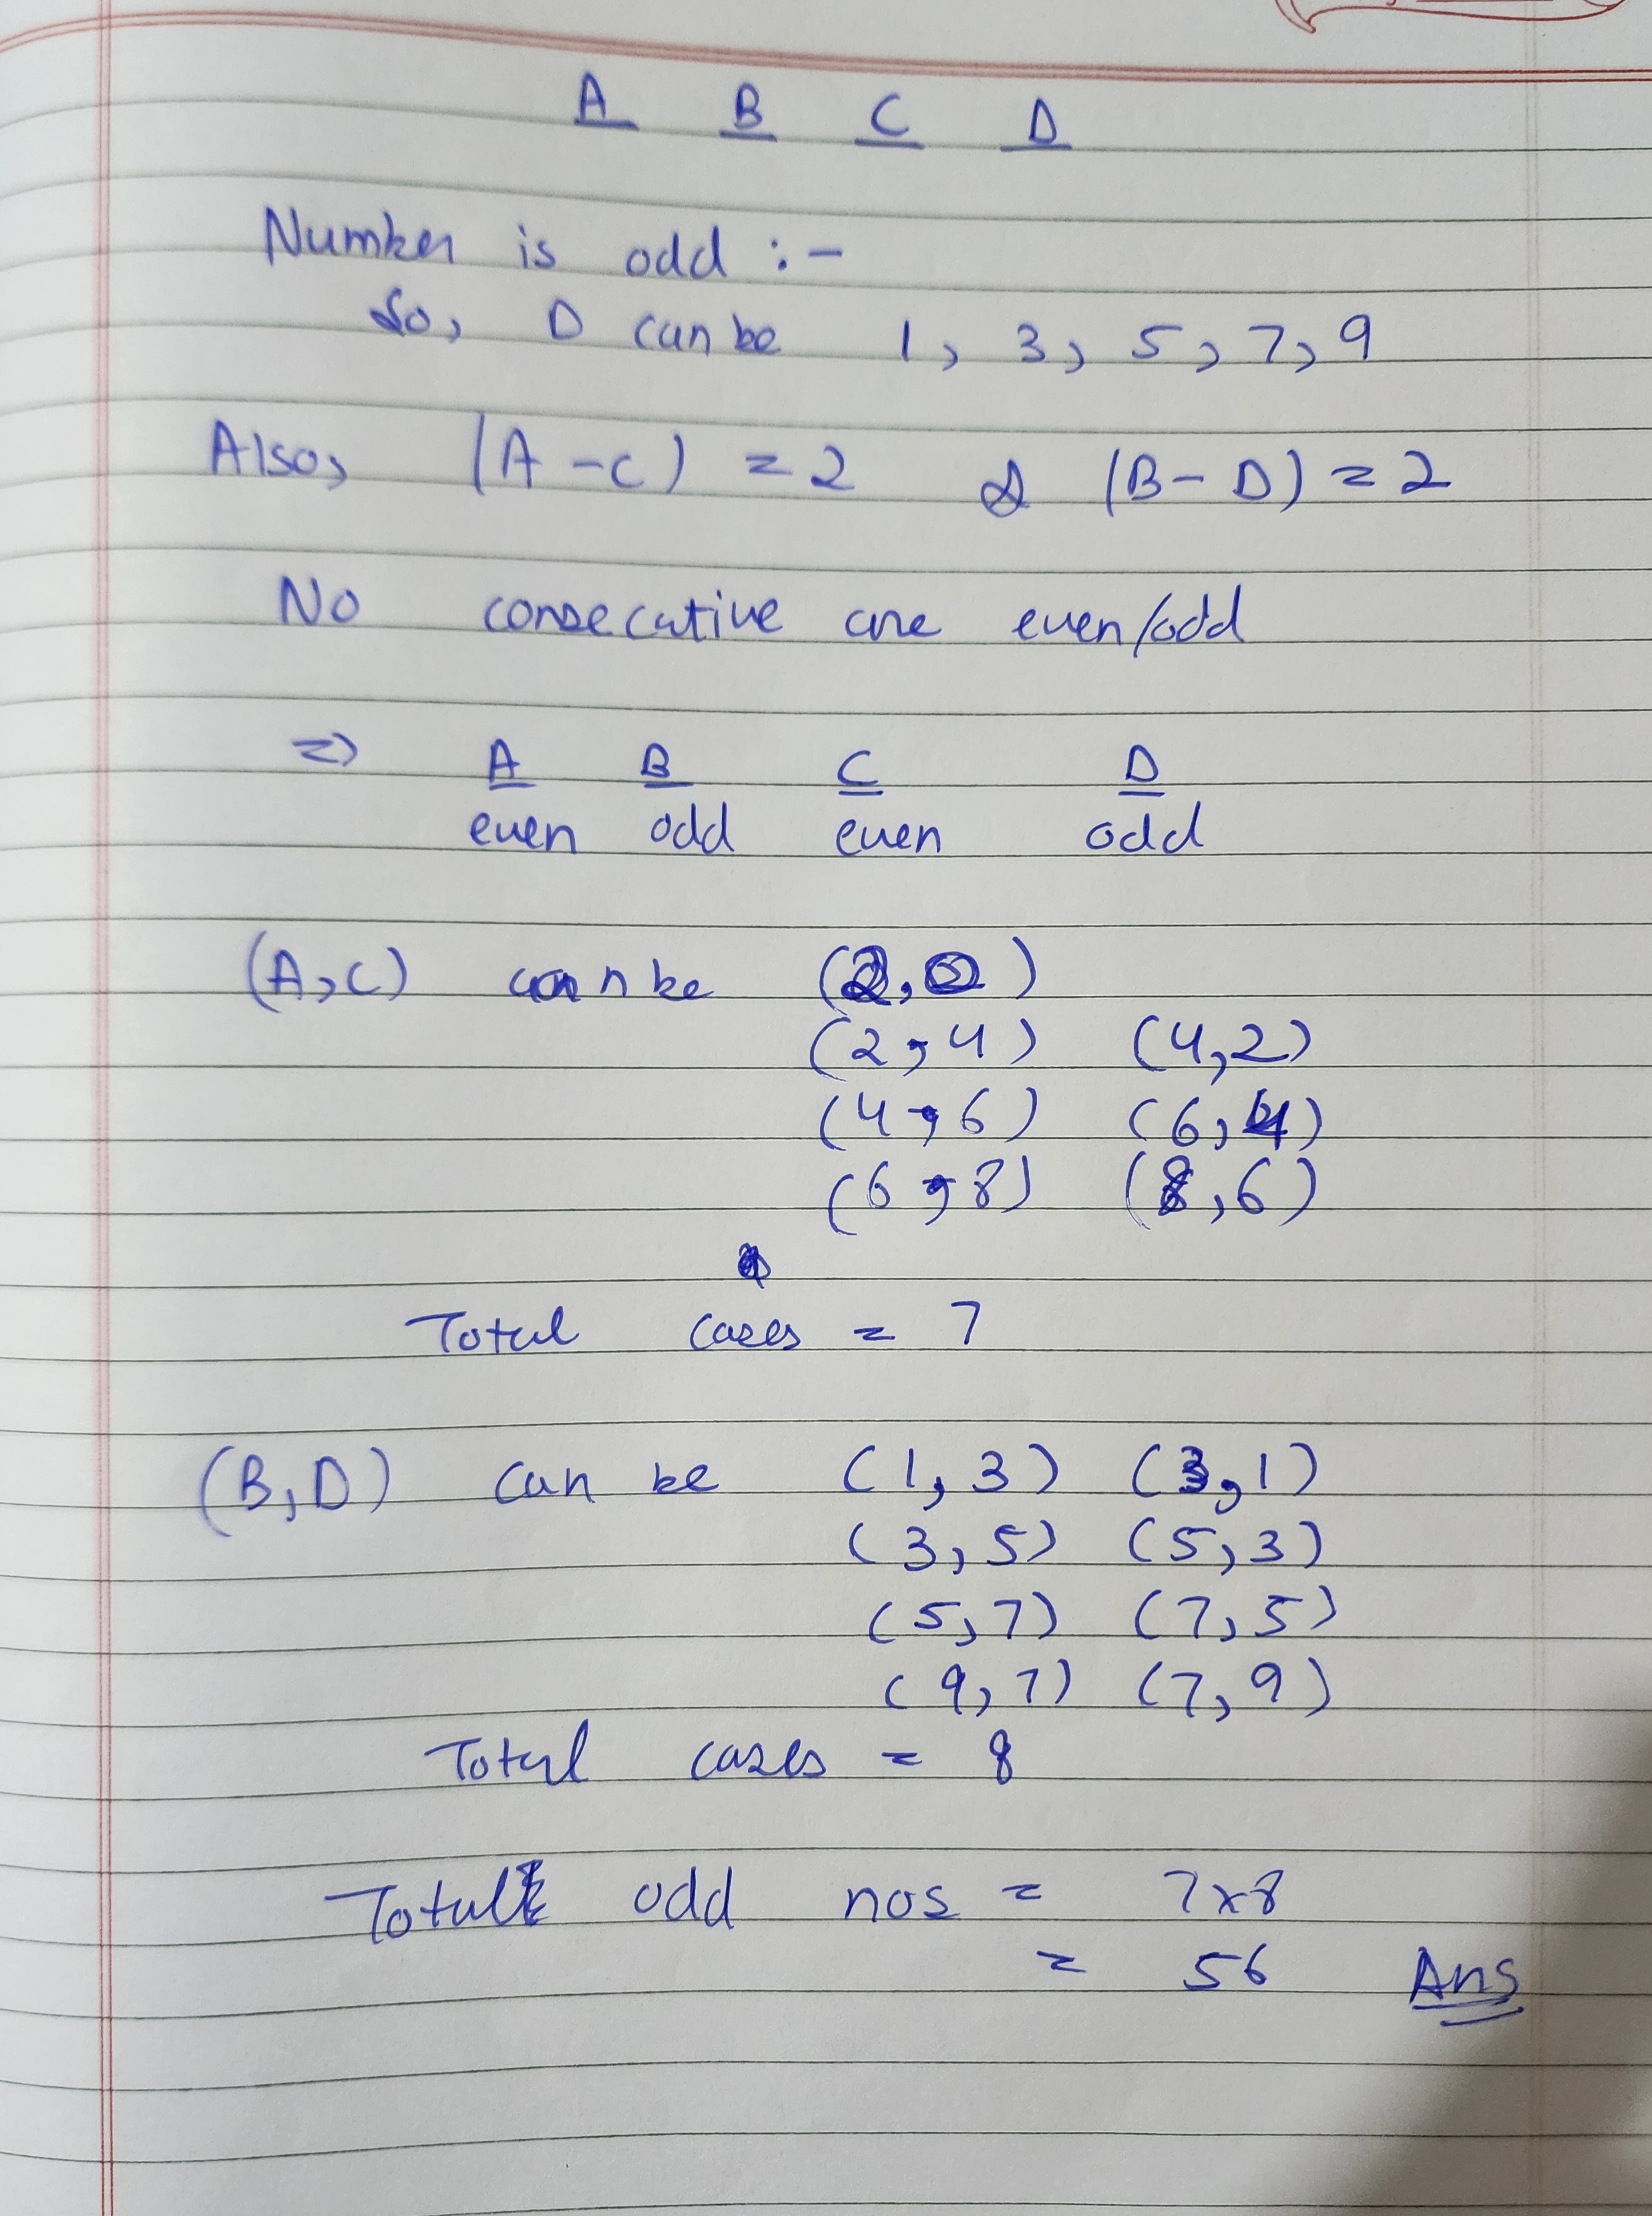 A B C D
Number is odd :-
So, D can be 1, 3, 5, 7, 9
Also, |A - C| = 2 & |B - D| = 2
No consecutive are even/odd
=> A B C D
even odd even odd
(A, C) can be (2, 0)
(2, 4) (4, 2)
(4, 6) (6, 4)
(6, 8) (8, 6)
Total cases = 7
(B, D) can be (1, 3) (3, 1)
(3, 5) (5, 3)
(5, 7) (7, 5)
(9, 7) (7, 9)
Total cases = 8
Total odd nos = 7x8
= 56 Ans